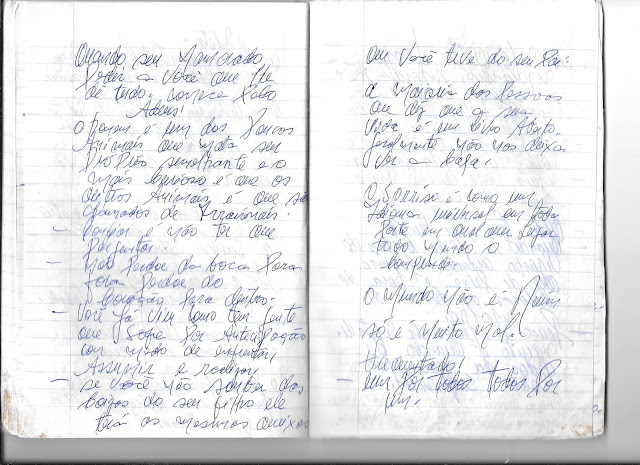 Quando seu Namorado
Pedir a você que lhe
dê tudo,
Adeus!
O homem é um dos Poucos
Animais que mata seu
PróPrio semelhante e o
mais curioso é que os
outros Animais é que são
chamados de Irracionais.
é não ter que
Perguntar.
Não da boca Para
fora Perdoe do
coração Para dentro.
Você já viu como tem gente
que Sofre Por AnteciPação
com medo de enfrentar,
Assumir e
se você não
do seu filho ele
terá as mesmas queixas
que você teve do seu Pai.
A maioria das Pessoas
que diz que a sua
vida é um livro Aberto,
não nos deixa
ler a
O Sorriso é como um
idioma universal em toda
Parte em qualquer lugar
todo mundo o
O Mundo não é Ruim
só é muito mal
um Por todos todos Por
um.